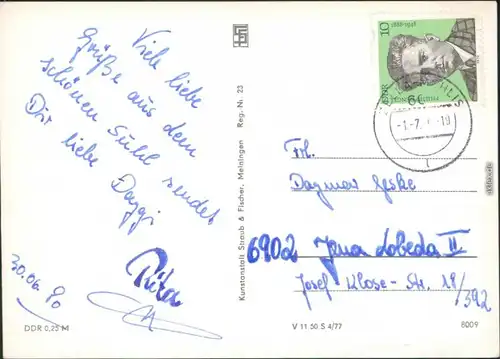 Viele liebe
Grüße aus dem
schönen Suhl sendet
Dir liebe Daggi
Rita
30.06.80
DDR 0,25 M
Kunstanstalt Straub & Fischer, Meiningen Reg.-Nr. 23
1888-1948
10
DDR
-1.-7.
-19
Frl.
Dagmar Jeske
6902 Jena Lobeda II
Josef Klose-Str. 18/392
V 11 50 S 4/77
8009